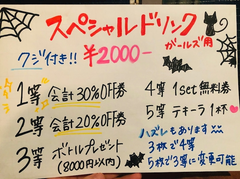 スペシャルドリンク
ガールズ用
クジ付き!! ¥2000-
1等 会計30%OFF券
2等 会計20%OFF券
3等 ボトルプレゼント
(8000円以内)
4等 1set無料券
5等 テキーラ1杯
ハズレもあります
3枚で4等
5枚で3等に変更可能